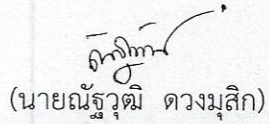 (นายณัฐวุฒิ ดวงมุสิก)